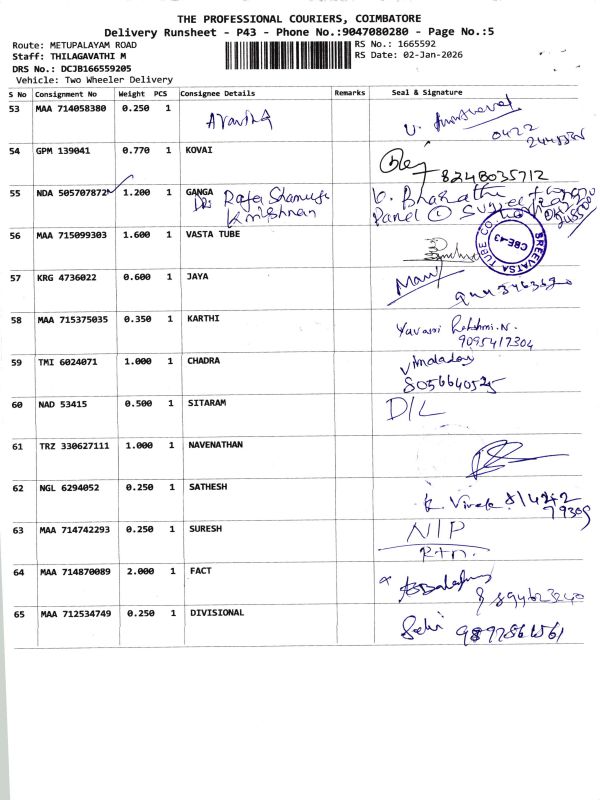 THE PROFESSIONAL COURIERS, COIMBATORE
Delivery Runsheet - P43 - Phone No.:9047080280 - Page No.:5
Route: METUPALAYAM ROAD RS No.: 1665592
Staff: THILAGAVATHI M RS Date: 02-Jan-2026
DRS No.: DCJB166559205
Vehicle: Two Wheeler Delivery
S No Consignment No Weight PCS Consignee Details Remarks Seal & Signature
53 MAA 714058380 0.250 1
0422
54 GPM 139041 0.770 1 KOVAI
8248035712
55 NDA 505707872 1.200 1 GANGA
Krishnan
56 MAA 715099303 1.600 1 VASTA TUBE
SREEVATSA TUBE CO CBE-43
57 KRG 4736022 0.600 1 JAYA
58 MAA 715375035 0.350 1 KARTHI
9095417304
59 TMI 6024071 1.000 1 CHADRA
8056640525
60 NAD 53415 0.500 1 SITARAM
D/L
61 TRZ 330627111 1.000 1 NAVENATHAN
62 NGL 6294052 0.250 1 SATHESH
63 MAA 714742293 0.250 1 SURESH
N/P
Rtn.
64 MAA 714870089 2.000 1 FACT
65 MAA 712534749 0.250 1 DIVISIONAL